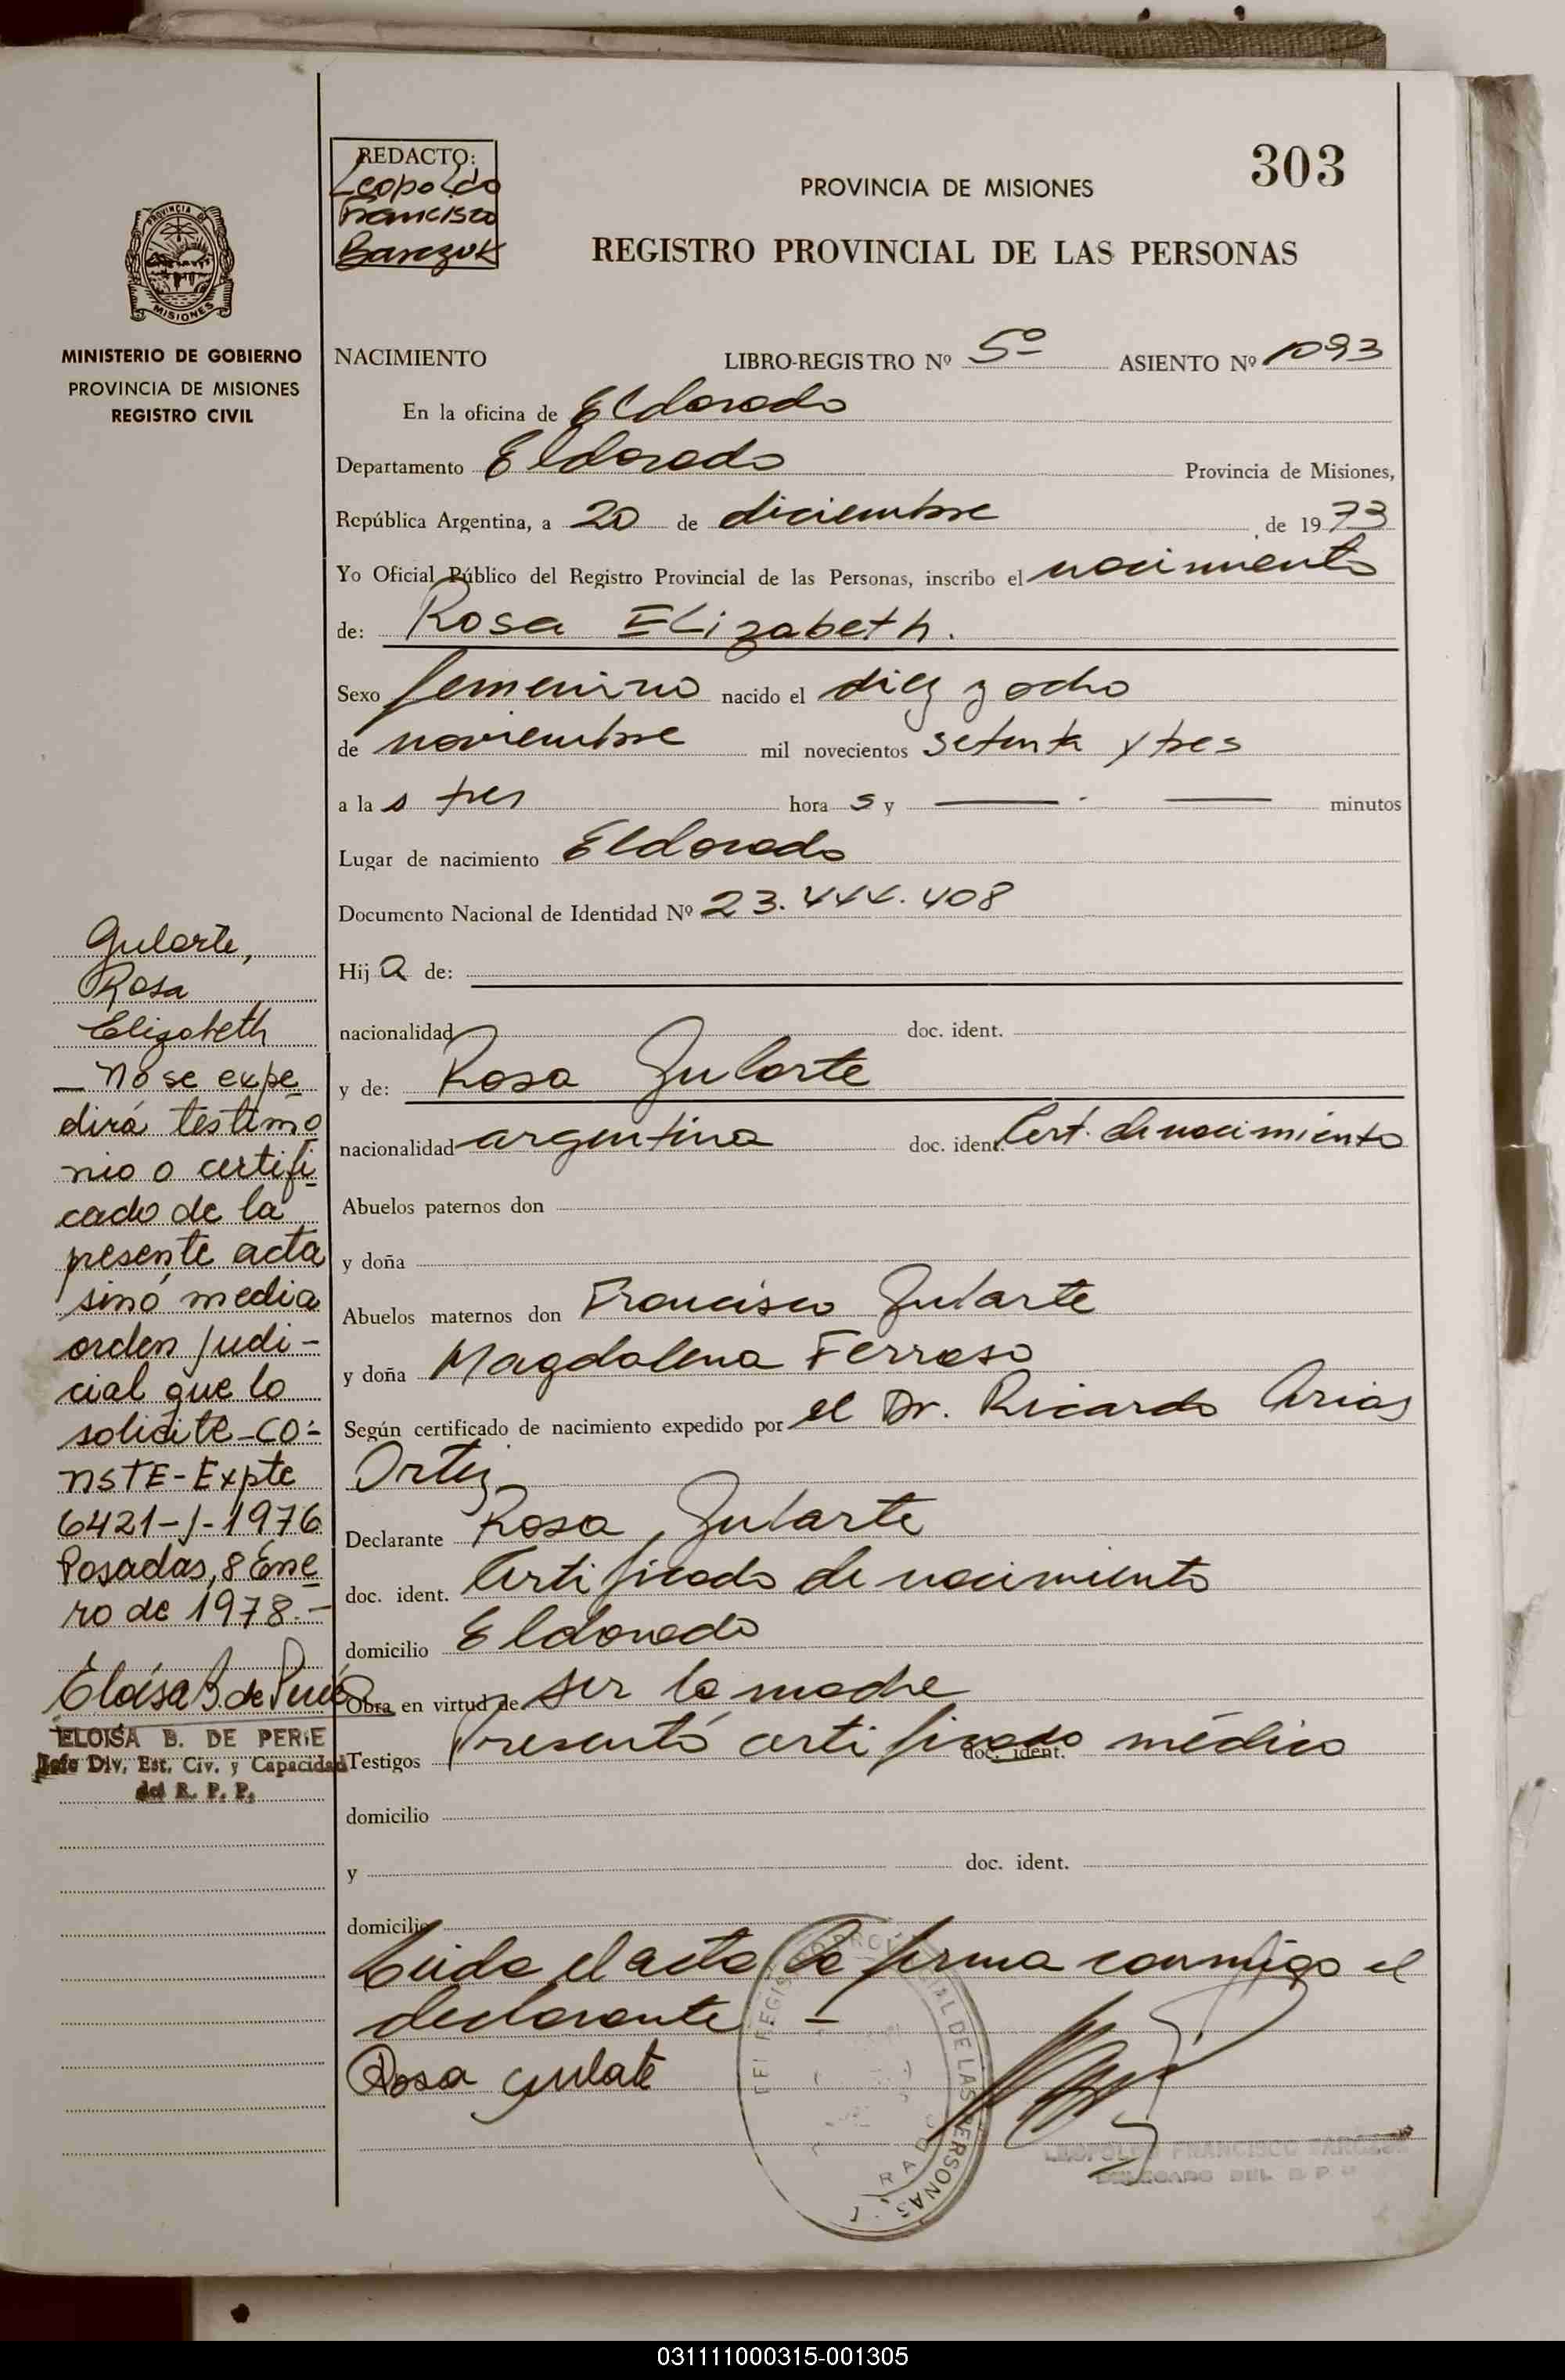 303
REDACTO:
Leopoldo
Francisco
Barczuk
PROVINCIA DE MISIONES
REGISTRO PROVINCIAL DE LAS PERSONAS
PROVINCIA DE
MISIONES
MINISTERIO DE GOBIERNO
PROVINCIA DE MISIONES
REGISTRO CIVIL
NACIMIENTO LIBRO-REGISTRO Nº 5º ASIENTO Nº 1093
En la oficina de Eldorado
Departamento Eldorado Provincia de Misiones,
República Argentina, a 20 de diciembre de 1973
Yo Oficial Público del Registro Provincial de las Personas, inscribo el nacimiento
de: Rosa Elizabeth.
Sexo femenino nacido el diez y ocho
de noviembre mil novecientos setenta y tres
a las tres horas y minutos
Lugar de nacimiento Eldorado
Documento Nacional de Identidad Nº 23.444.408
Hija de:
nacionalidad doc. ident.
y de: Rosa Gularte
nacionalidad argentina doc. ident. Cert. de nacimiento
Abuelos paternos don
y doña
Abuelos maternos don Francisco Gularte
y doña Magdalena Ferroso
Según certificado de nacimiento expedido por el Dr. Ricardo Arias
Ortiz
Declarante Rosa Gularte
doc. ident. Certificado de nacimiento
domicilio Eldorado
Obra en virtud de ser la madre
Testigos Presentó certificado doc. ident. médico
domicilio
y doc. ident.
domicilio
Leida el acta la firma conmigo el
declarante -
Rosa Gulate
Gularte,
Rosa
Elizabeth
— No se expe
dirá testimo
nio o certifi
cado de la
presente acta
sinó media
orden judi-
cial que lo
solicite-CO-
NSTE-Expte
6421-J-1976
Posadas, 8 Ene
ro de 1978.-
Eloisa B. de Perié
ELOISA B. DE PERIE
Jefe Div. Est. Civ. y Capacidad
del R. P. P.
REGISTRO PROVINCIAL DE LAS PERSONAS
LEOPOLDO FRANCISCO BARCZUK
DELEGADO DEL R P P
031111000315-001305